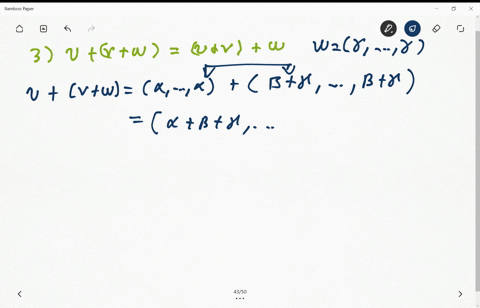 Bamboo Paper
3) v + (v + w) = (v + v) + w   w = (γ, ..., γ)
v + (v + w) = (α, ..., α) + (β + γ, ..., β + γ)
= (α + β + γ, ...
43/50